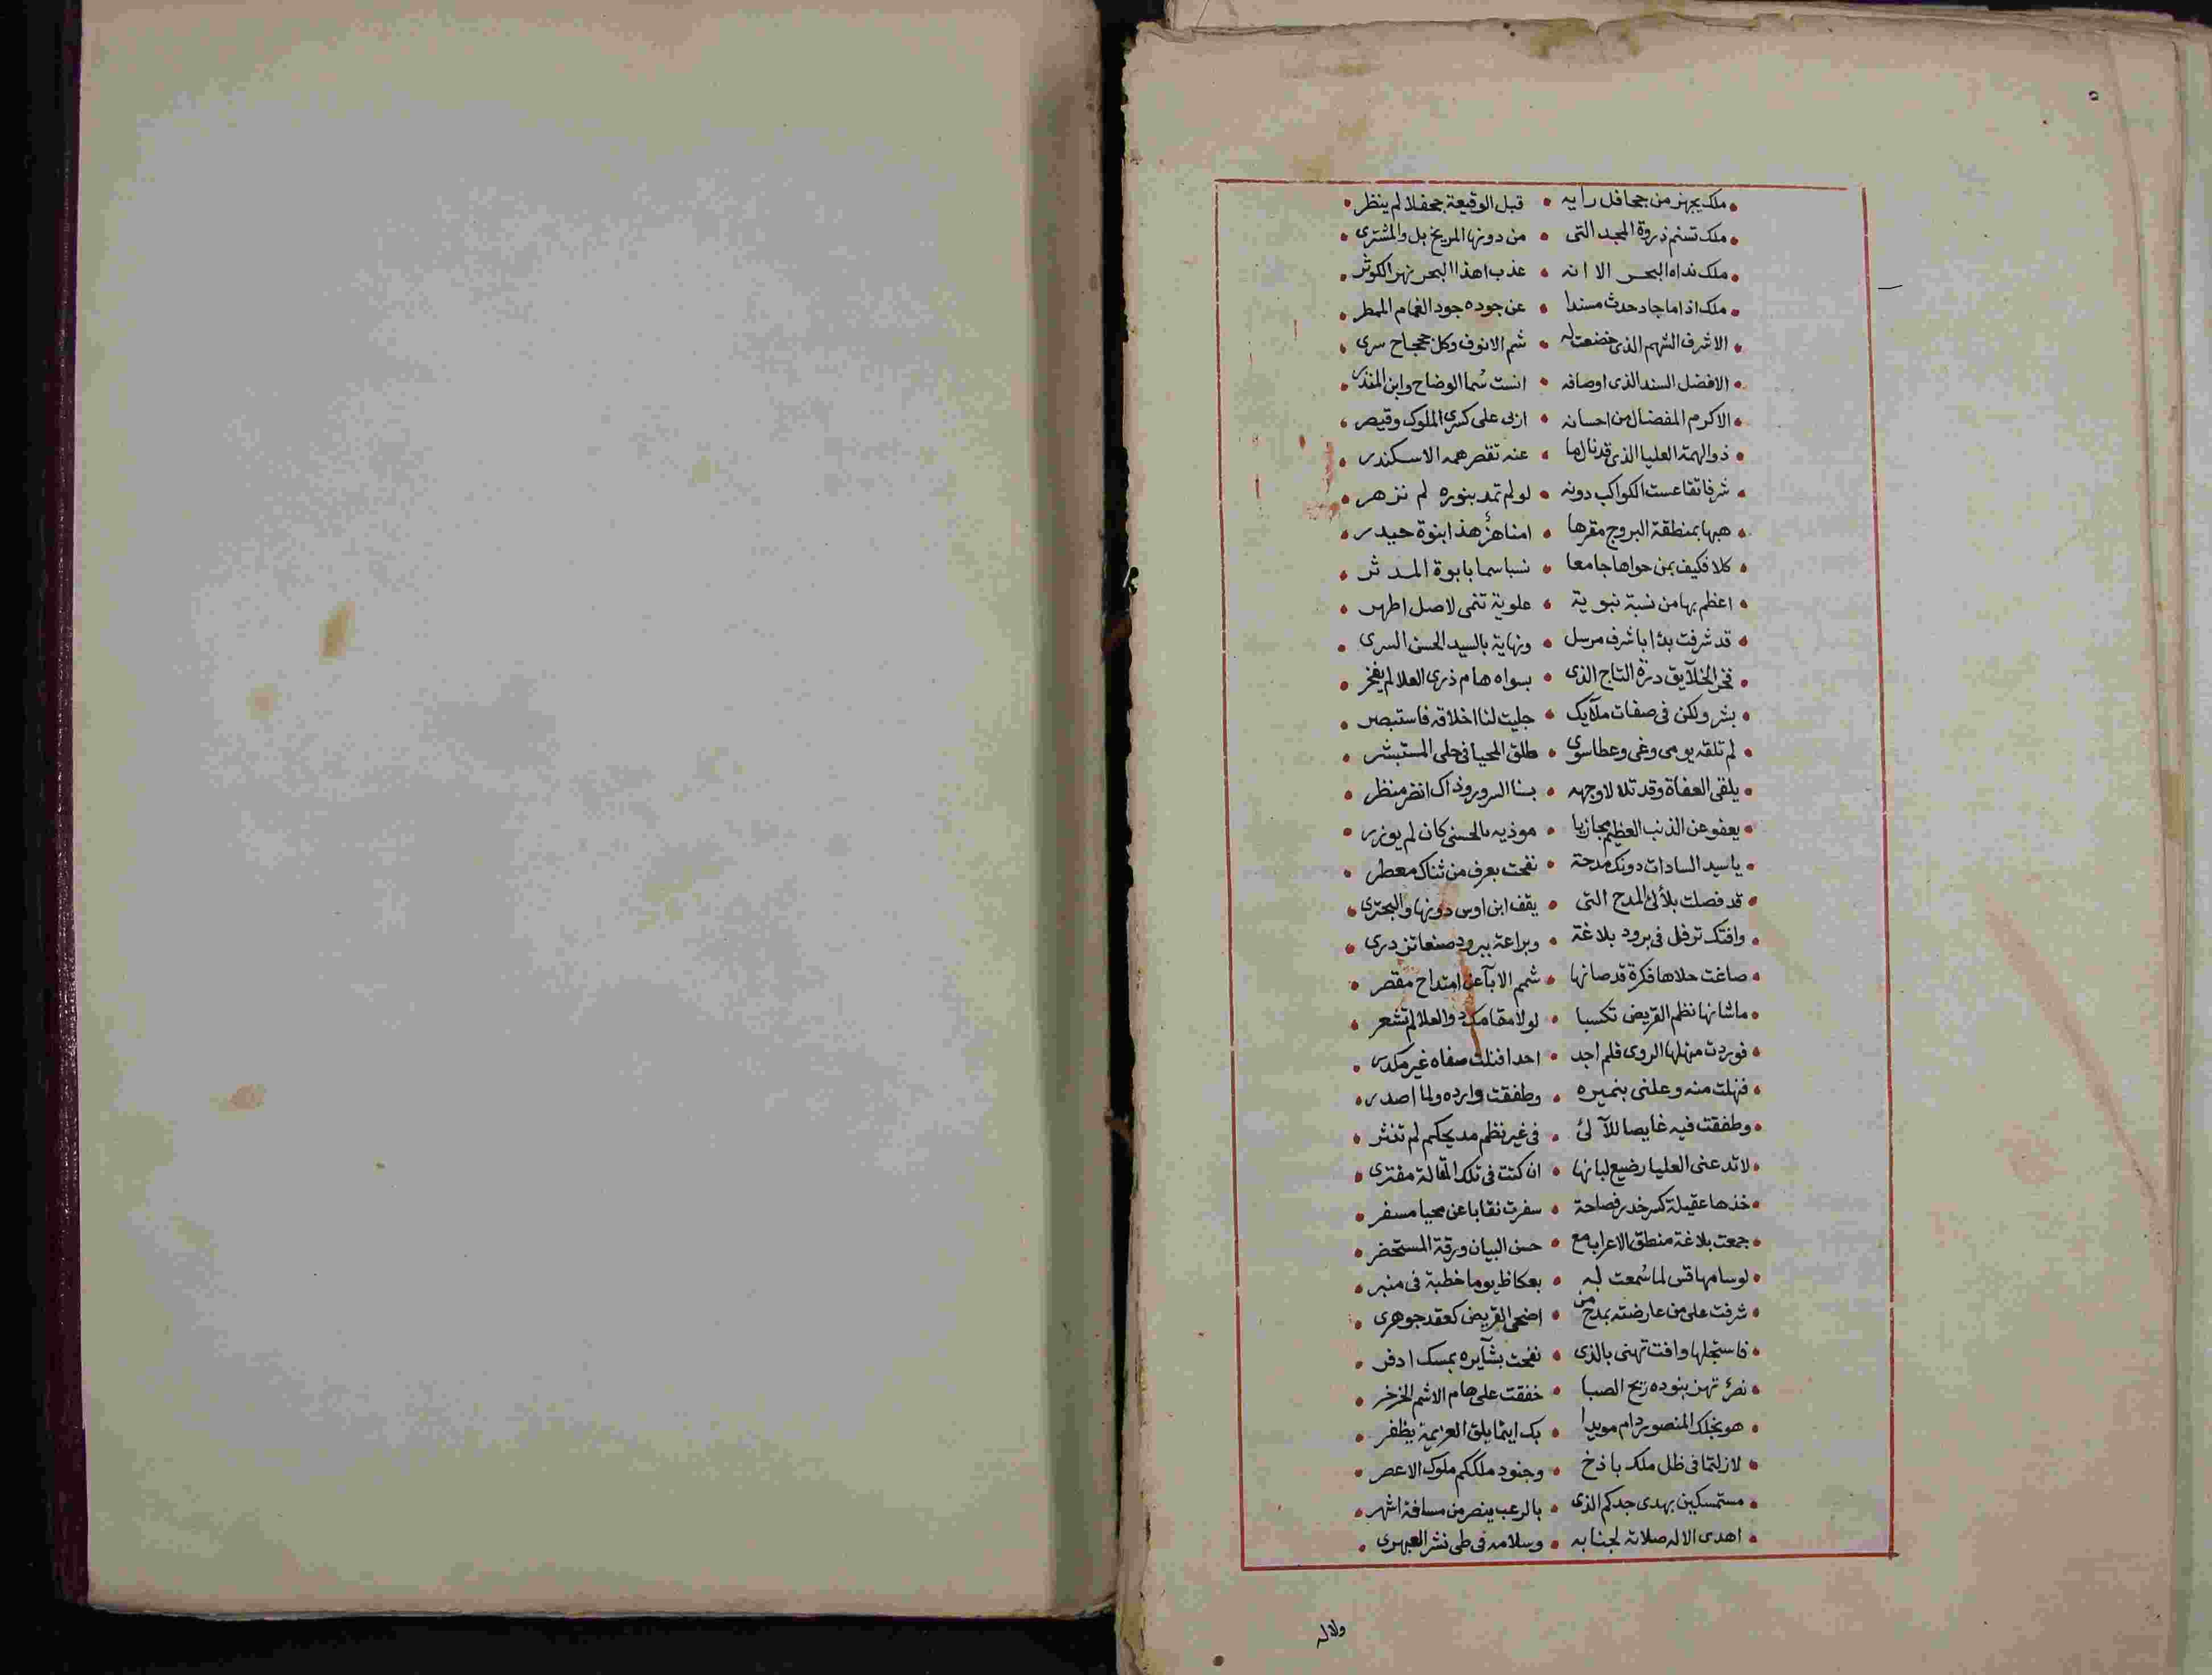 ملك يجهز من جحافل رايه • قبل الوقيعة جحفلا لم ينظر
ملك تسنم ذروة المجد التى • من دونها المريخ بل والمشترى
ملك نداه البحر الا انه • عذب اهذا البحر نهر الكوثر
ملك اذا ما جاد حدث مسندا • عن جوده جود الغمام الممطر
الاشرف الشهم الذى خضعت له • شم الانوف وكل جحجاح سرى
الافضل السند الذى اوصافه • انست سُما الوضاح وابن المنذر
الاكرم المفضال من احسانه • اربى على كسرى الملوك وقيصر
ذو الهمة العليا الذى قد نال ما • عنه تقصر همه الاسكندر
شرفا تقاعست الكواكب دونه • لو لم تمد بنوره لم تزهر
هبها بمنطقة البروج مقرها • امناهزٌ هذا بنوة حيدر
كلا فكيف بمن حواها جامعا • نسبا سما بابوة المدثر
اعظم بها من نسبة نبوية • علوية تنمى لاصل اطهر
قد شرفت بدًا باشرف مرسل • ونهاية بالسيد الحسن السرى
فخر الخلآيق درّة التاج الذى • بسواه هام ذرى العلا لم يفخر
بشر ولكن فى صفات ملآيك • جليت لنا اخلاقه فاستبصر
لم تلقه يومى وغى وعطا سوى • طلق المحيا فى حلى المستبشر
يلقى العفاة وقد تلالا وجهه • بسنا السرور وذاك انضر منظر
يعفو عن الذنب العظيم مجازيا • موذيه بالحسنى كان لم يوزر
يا سيد السادات دونك مدحة • نفحت بعرف من ثناك معطر
قد فصلت بلألئ المدح التى • يقف ابن اوس دونها والبحترى
وافتك ترفل فى برود بلاغة • وبراعة ببرود صنعا تزدرى
صاغت حلاها فكرة قد صانها • شمم الابآ عن امتداح مقصر
ما شانها نظم القريض تكسبا • لولا مقامك ذو العلا لم تشعر
فوردت منهلها الروى فلم اجد • احدا فنلت صفاه غير مكدر
فنهلت منه وعلنى بنميره • وطفقت وارده ولما اصدر
وطفقت فيه غايصا للآلئ • فى غير نظم مديحكم لم تنثر
لا تدعنى العليا رضيع لبانها • ان كنت فى تلك المقالة مفترى
خذها عقيلة كسر خدر فصاحة • سفرت نقابا عن محيا مسفر
جمعت بلاغة منطق الاعراب مع • حسن البيان ورقة المستحضر
لو سامها قس لما سُمعت له • بعكاظ يوما خطبة فى منبر
شرفت على من عارضته بمدح من • اضحى القريض كعقد جوهرى
فاستجلها وافت تهنى بالذى • نفحت بشآيره بمسك اذفر
نصرٌ تهز بنوده ريح الصبا • خفقت على هام الاشم
هو نجلك المنصور دام مويدا • بك اينما يلق العزيمة يظفر
لا زلتما فى ظل ملك باذخ • وجنود ملككم ملوك الاعصر
مستمسكين بهدى جدكم الذى • بالرعب ينصر من مسافة اشهر
اهدى الاله صلاته لجنابه • وسلامه فى طى نشر العبهرى
وله